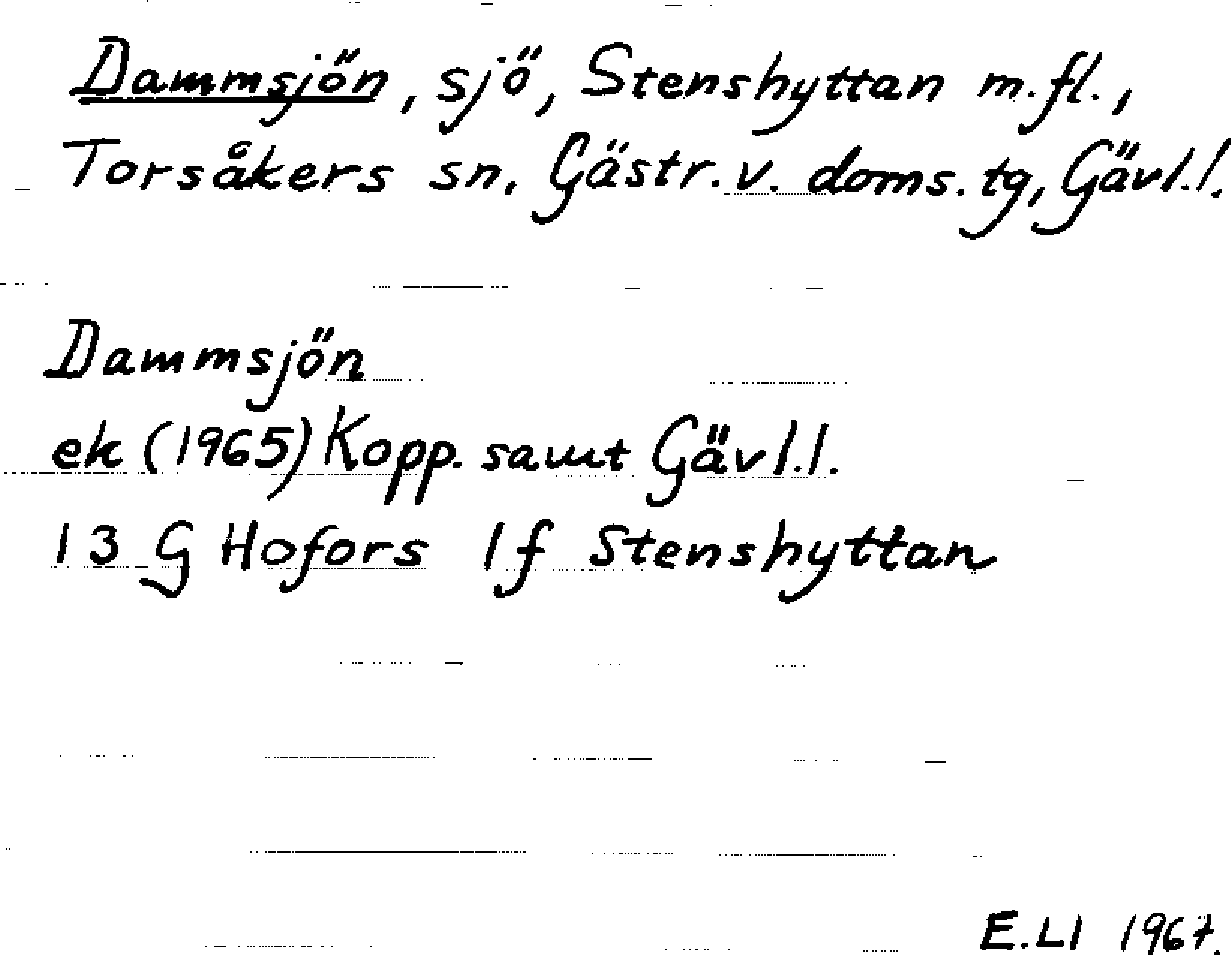 Dammsjön, sjö, Stenshyttan m.fl.,
Torsåkers sn. Gästr. v. doms. tg, Gävl.l.
Dammsjön
ek (1965) Kopp. samt Gävl.l.
13 G Hofors 1f Stenshyttan
E.Ll 1967.